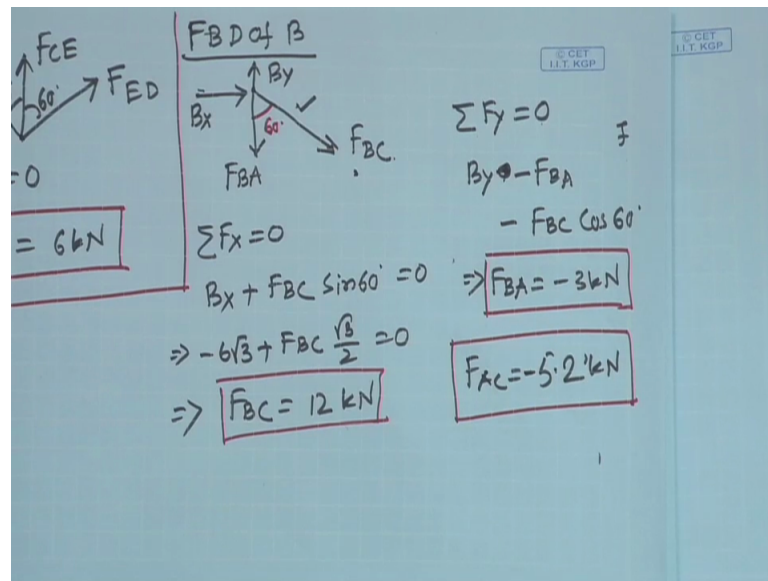 FCE
60°
FED
=0
= 6kN
FBD of B
By
Bx
60°
FBC.
FBA
ΣFx=0
Bx + FBC Sin60° =0
⇒ -6√3 + FBC √3/2 =0
⇒ FBC = 12 kN
© CET
I.I.T. KGP
© CET
I.I.T. KGP
ΣFy=0
By - FBA
- FBC Cos 60°
⇒ FBA = -3kN
FAC = -5.2 kN